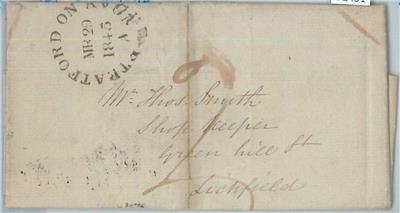 STRATFORD ON AVON
MR 29
1845
A
Mr. Thos. Smyth
Shop keeper
Green hill St
Lichfield